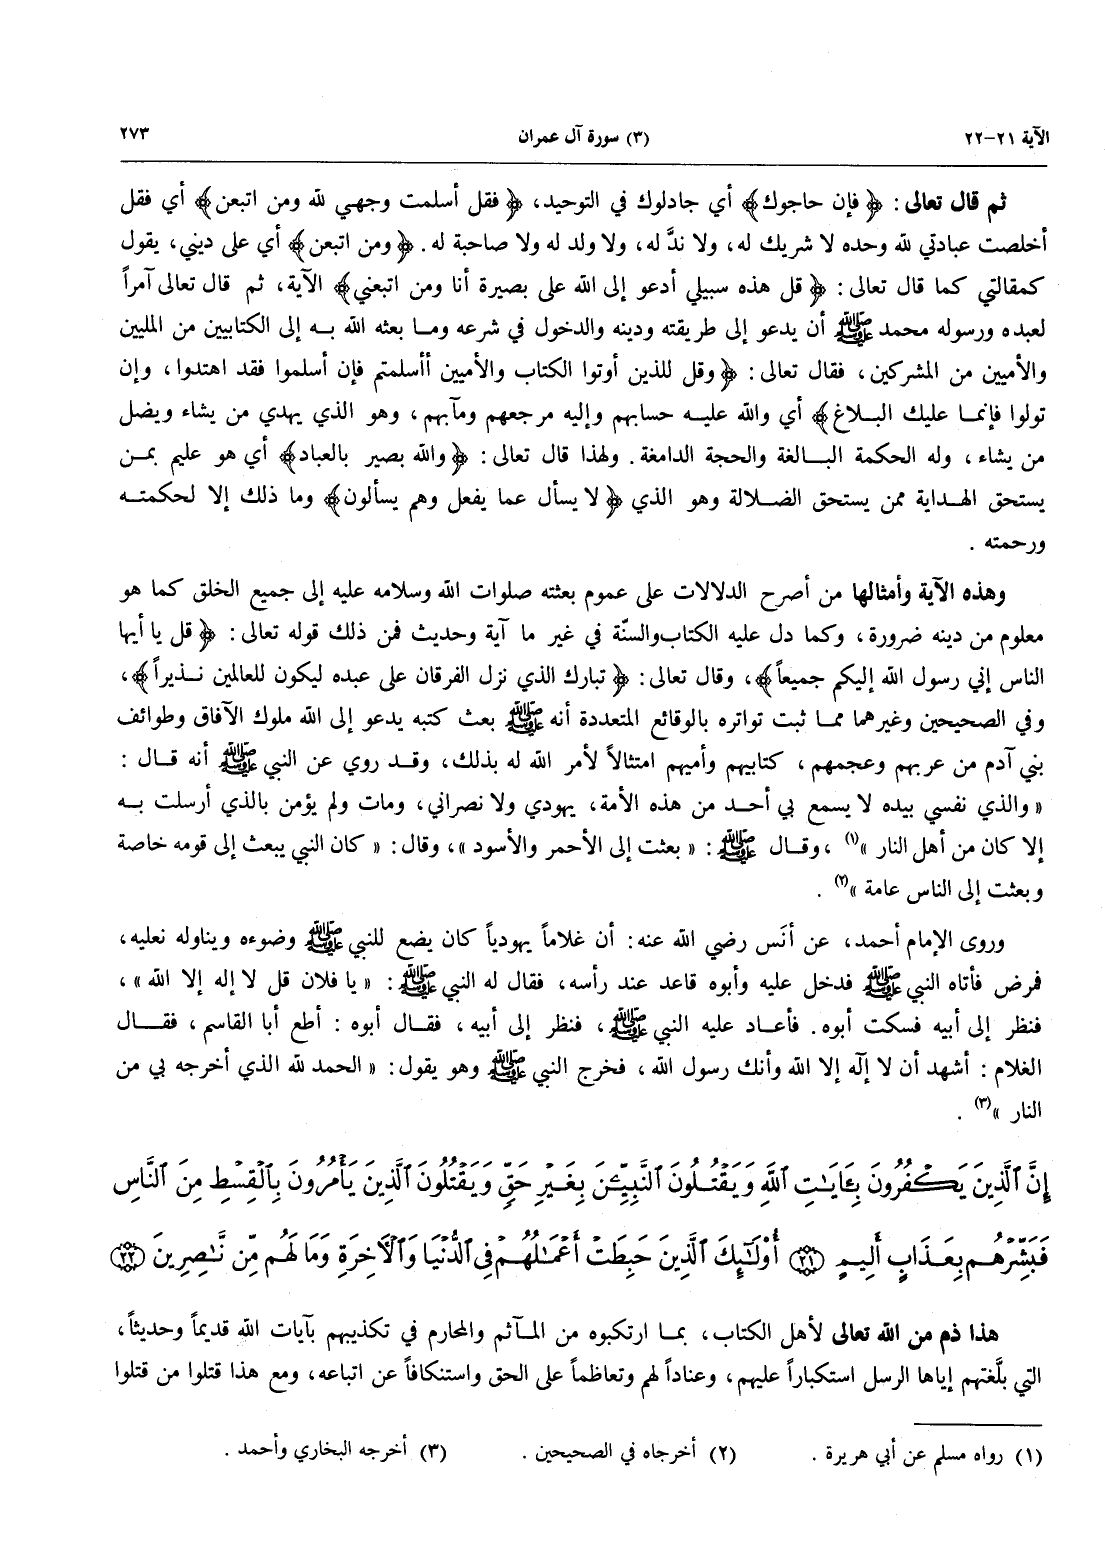 الآية ٢١-٢٢ (٣) سورة آل عمران ٢٧٣
ثم قال تعالى: ﴿فإن حاجوك﴾ أي جادلوك في التوحيد، ﴿فقل أسلمت وجهي لله ومن اتبعن﴾ أي فقل
أخلصت عبادتي لله وحده لا شريك له، ولا ندَّ له، ولا ولد له ولا صاحبة له. ﴿ومن اتبعن﴾ أي على ديني، يقول
كمقالتي كما قال تعالى: ﴿قل هذه سبيلي أدعو إلى الله على بصيرة أنا ومن اتبعني﴾ الآية، ثم قال تعالى آمراً
لعبده ورسوله محمد ﷺ أن يدعو إلى طريقته ودينه والدخول في شرعه وما بعثه الله به إلى الكتابيين من المليين
والأميين من المشركين، فقال تعالى: ﴿وقل للذين أوتوا الكتاب والأميين أأسلمتم فإن أسلموا فقد اهتدوا، وإن
تولوا فإنما عليك البلاغ﴾ أي والله عليه حسابهم وإليه مرجعهم ومآبهم، وهو الذي يهدي من يشاء ويضل
من يشاء، وله الحكمة البالغة والحجة الدامغة. ولهذا قال تعالى: ﴿والله بصير بالعباد﴾ أي هو عليم بمن
يستحق الهداية ممن يستحق الضلالة وهو الذي ﴿لا يسأل عما يفعل وهم يسألون﴾ وما ذلك إلا لحكمته
ورحمته.
وهذه الآية وأمثالها من أصرح الدلالات على عموم بعثته صلوات الله وسلامه عليه إلى جميع الخلق كما هو
معلوم من دينه ضرورة، وكما دل عليه الكتاب والسنّة في غير ما آية وحديث فمن ذلك قوله تعالى: ﴿قل يا أيها
الناس إني رسول الله إليكم جميعاً﴾، وقال تعالى: ﴿تبارك الذي نزل الفرقان على عبده ليكون للعالمين نذيراً﴾،
وفي الصحيحين وغيرهما مما ثبت تواتره بالوقائع المتعددة أنه ﷺ بعث كتبه يدعو إلى الله ملوك الآفاق وطوائف
بني آدم من عربهم وعجمهم، كتابيهم وأميهم امتثالاً لأمر الله له بذلك، وقد روي عن النبي ﷺ أنه قال:
«والذي نفسي بيده لا يسمع بي أحد من هذه الأمة، يهودي ولا نصراني، ومات ولم يؤمن بالذي أرسلت به
إلا كان من أهل النار»(١)، وقال ﷺ: «بعثت إلى الأحمر والأسود»، وقال: «كان النبي يبعث إلى قومه خاصة
وبعثت إلى الناس عامة»(٢).
وروى الإمام أحمد، عن أنَس رضي الله عنه: أن غلاماً يهودياً كان يضع للنبي ﷺ وضوءه ويناوله نعليه،
فمرض فأتاه النبي ﷺ فدخل عليه وأبوه قاعد عند رأسه، فقال له النبي ﷺ: «يا فلان قل لا إله إلا الله»،
فنظر إلى أبيه فسكت أبوه. فأعاد عليه النبي ﷺ، فنظر إلى أبيه، فقال أبوه: أطع أبا القاسم، فقال
الغلام: أشهد أن لا إلَه إلا الله وأنك رسول الله، فخرج النبي ﷺ وهو يقول: «الحمد لله الذي أخرجه بي من
النار»(٣).
إِنَّ ٱلَّذِينَ يَكْفُرُونَ بِـَٔايَٰتِ ٱللَّهِ وَيَقْتُلُونَ ٱلنَّبِيِّـۧنَ بِغَيْرِ حَقٍّ وَيَقْتُلُونَ ٱلَّذِينَ يَأْمُرُونَ بِٱلْقِسْطِ مِنَ ٱلنَّاسِ
فَبَشِّرْهُم بِعَذَابٍ أَلِيمٍ ﴿٢١﴾ أُوْلَٰٓئِكَ ٱلَّذِينَ حَبِطَتْ أَعْمَٰلُهُمْ فِي ٱلدُّنْيَا وَٱلْءَاخِرَةِ وَمَا لَهُم مِّن نَّٰصِرِينَ ﴿٢٢﴾
هذا ذم من الله تعالى لأهل الكتاب، بما ارتكبوه من المآثم والمحارم في تكذيبهم بآيات الله قديماً وحديثاً،
التي بلَّغتهم إياها الرسل استكباراً عليهم، وعناداً لهم وتعاظماً على الحق واستنكافاً عن اتباعه، ومع هذا قتلوا من قتلوا
(١) رواه مسلم عن أبي هريرة. (٢) أخرجاه في الصحيحين. (٣) أخرجه البخاري وأحمد.